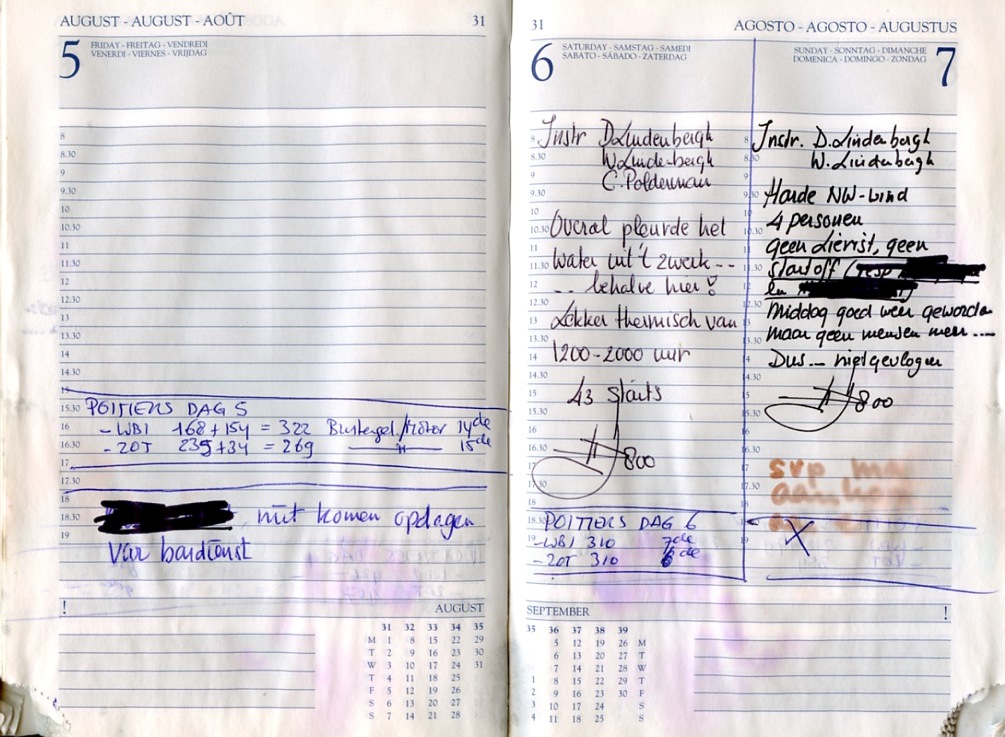 AUGUST - AUGUST - AOÛT 31
5 FRIDAY - FREITAG - VENDREDI
VENERDI - VIERNES - VRIJDAG
8
8.30
9
9.30
10
10.30
11
11.30
12
12.30
13
13.30
14
14.30
15
15.30 POITIERS DAG 5
16 - WBI 168 + 154 = 322 Bustergel/Motor 14de
16.30 - ZOT 235 + 34 = 269 15de
17
17.30
18
18.30 niet komen opdagen
19 van bardienst
! AUGUST
31 32 33 34 35
M 1 8 15 22 29
T 2 9 16 23 30
W 3 10 17 24 31
T 4 11 18 25
F 5 12 19 26
S 6 13 20 27
S 7 14 21 28
31 AGOSTO - AGOSTO - AUGUSTUS
6 SATURDAY - SAMSTAG - SAMEDI
SABATO - SÁBADO - ZATERDAG
8 Instr D. Lindenbergh
8.30 W. Lindenbergh
9 C. Polderman
9.30
10
10.30 Overal pleurde het
11
11.30 water uit 't zwerk --
12 .. behalve hier!
12.30
13 Lekker thermisch van
13.30
14 1200-2000 uur
14.30
15 43 starts
15.30
16
16.30 # 800
17
17.30
18
18.30 POITIERS DAG 6
19 - WBI 310 7de
- ZOT 310 de
SUNDAY - SONNTAG - DIMANCHE 7
DOMENICA - DOMINGO - ZONDAG
8 Instr. D. Lindenbergh
8.30 W. Lindenbergh
9
9.30 Harde NW-wind
10 4 personen
geen lierist, geen
startoff (resp
en )
middag goed weer geworden
maar geen mensen meer ....
Dus -- niet gevlogen
14.30
# 800
svp
X
SEPTEMBER !
35 36 37 38 39
5 12 19 26 M
6 13 20 27 T
7 14 21 28 W
1 8 15 22 29 T
2 9 16 23 30 F
3 10 17 24 S
4 11 18 25 S